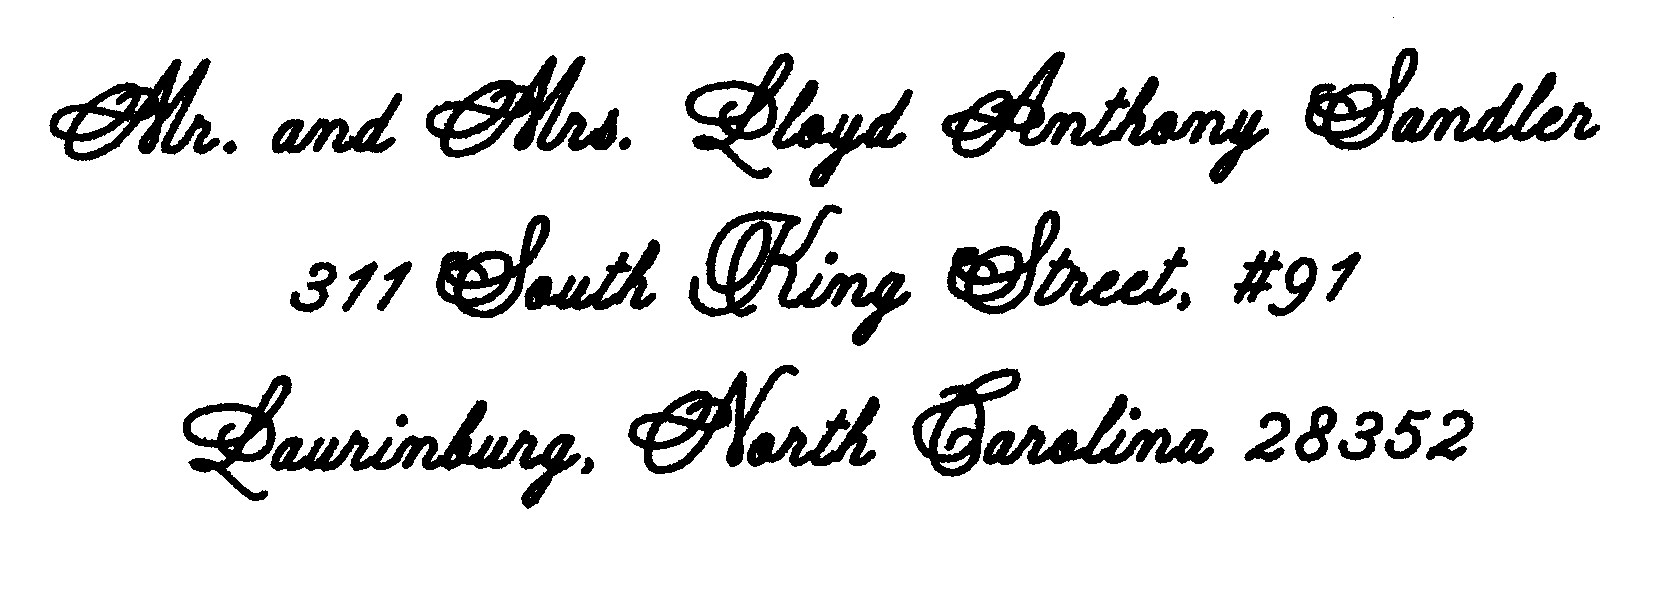 Mr. and Mrs. Lloyd Anthony Sandler
311 South King Street, #91
Laurinburg, North Carolina 28352